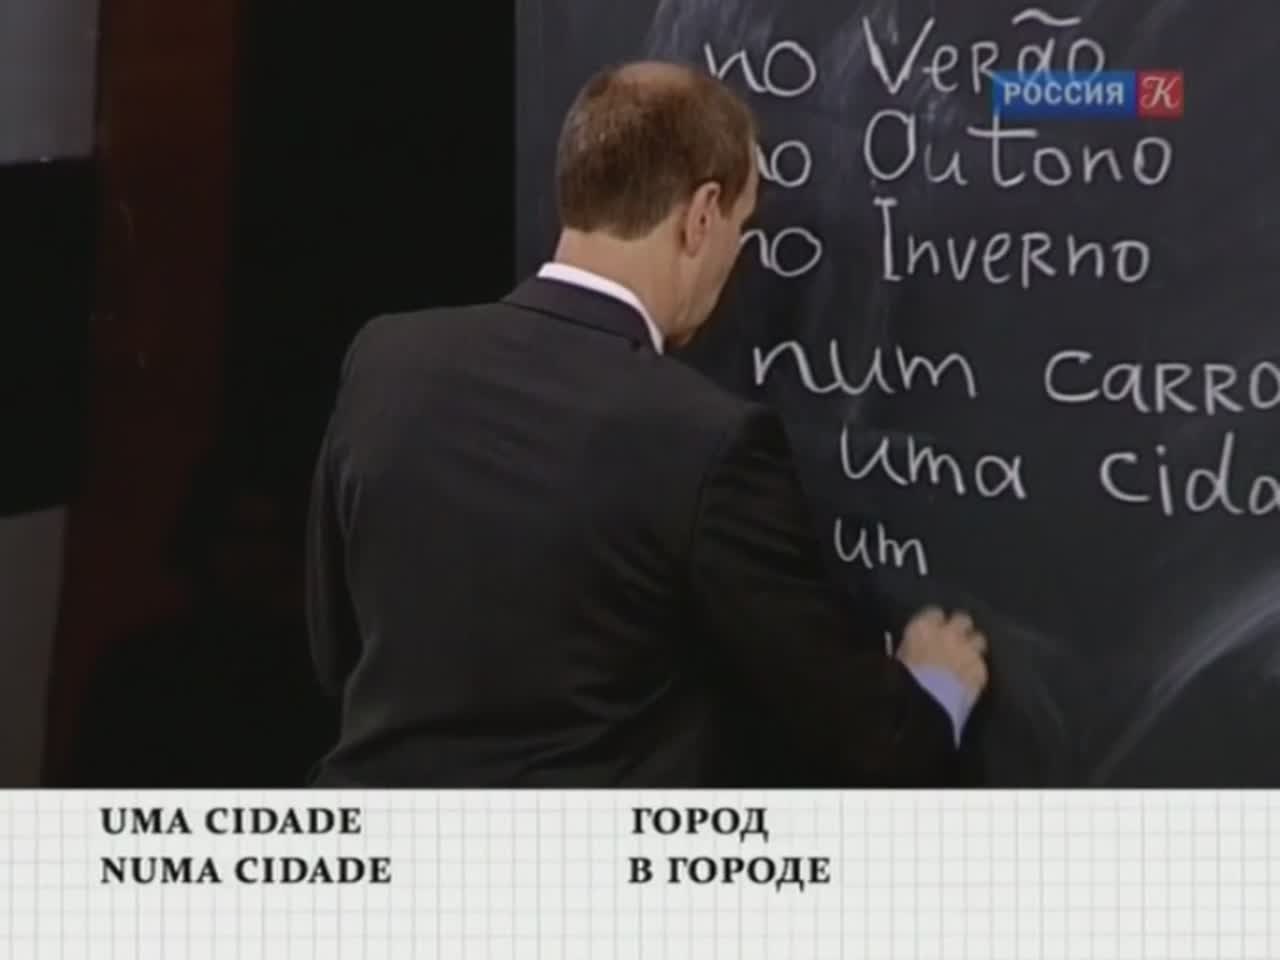 no Verão
РОССИЯ К
no Outono
no Inverno
num CARRO
uma cida
um
UMA CIDADE ГОРОД
NUMA CIDADE В ГОРОДЕ